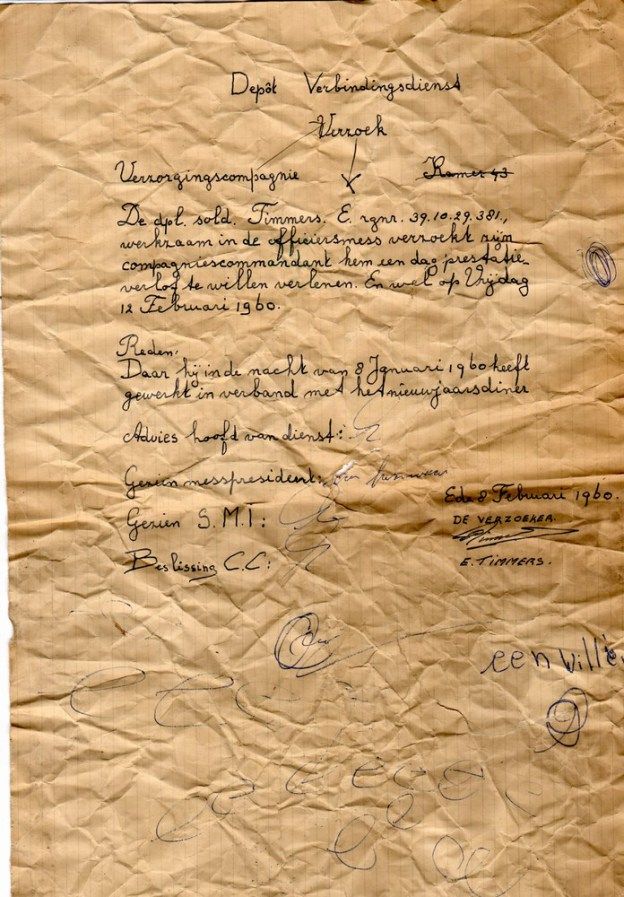 Depôt Verbindingsdienst
Verzoek
Verzorgingscompagnie Kamer 43
De dpl. sold. Timmers. E. rgnr. 39.10.29.381.,
werkzaam in de officiersmess verzoekt zijn
compagniescommandant hem een dag prestatie-
verlof te willen verlenen. En wel op Vrijdag
12 Februari 1960.
Reden:
Daar hij in de nacht van 8 Januari 1960 heeft
gewerkt in verband met het nieuwjaarsdiner
Advies hoofd van dienst:
Gezien messpresident:
Ede 8 Februari 1960.
Gezien S.M.I:
DE VERZOEKER.
Beslissing C.C:
E. TIMMERS.
een wille